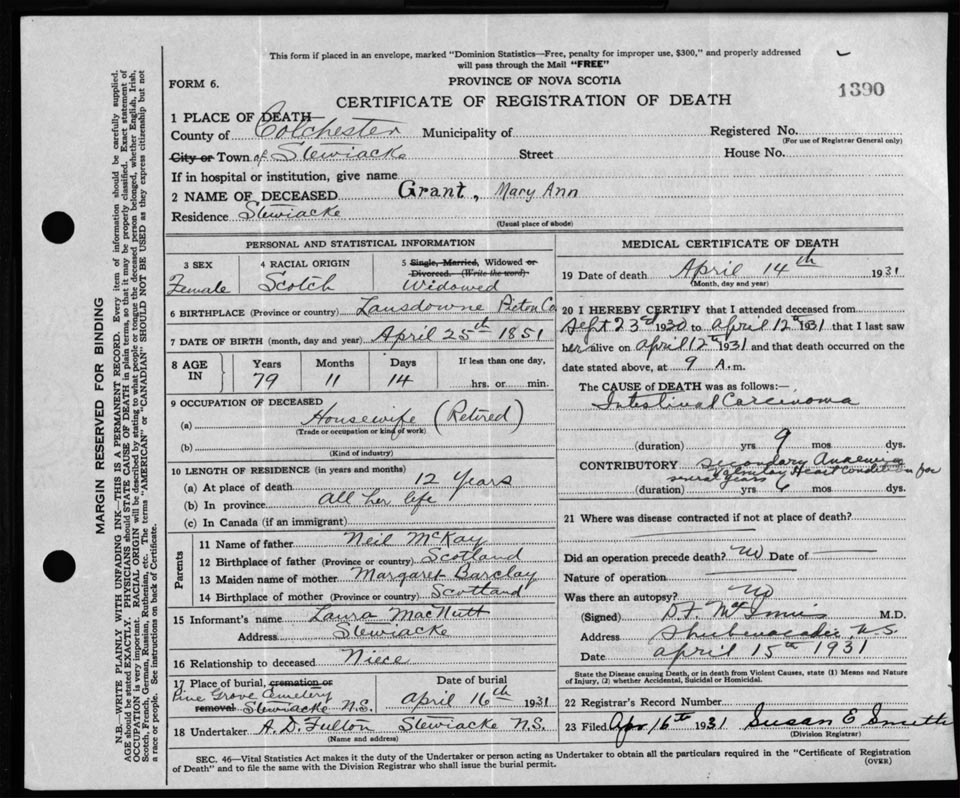 This form if placed in an envelope, marked "Dominion Statistics—Free, penalty for improper use, $300," and properly addressed
will pass through the Mail "FREE"
FORM 6.
PROVINCE OF NOVA SCOTIA
1390
CERTIFICATE OF REGISTRATION OF DEATH
1 PLACE OF DEATH—
County of Colchester Municipality of Registered No.
(For use of Registrar General only)
City or Town of Stewiacke Street House No.
If in hospital or institution, give name
2 NAME OF DECEASED Grant, Mary Ann
Residence Stewiacke
(Usual place of abode)
PERSONAL AND STATISTICAL INFORMATION
3 SEX 4 RACIAL ORIGIN 5 Single, Married, Widowed or
Divorced. (Write the word)
Female Scotch Widowed
6 BIRTHPLACE (Province or country) Lansdowne Picton Co
7 DATE OF BIRTH (month, day and year) April 25th 1851
8 AGE IN Years Months Days If less than one day,
79 11 14 hrs. or min.
9 OCCUPATION OF DECEASED
(a) Housewife (Retired)
(Trade or occupation or kind of work)
(b)
(Kind of industry)
10 LENGTH OF RESIDENCE (in years and months)
(a) At place of death 12 Years
(b) In province all her life
(c) In Canada (if an immigrant)
Parents
11 Name of father Neil McKay
12 Birthplace of father (Province or country) Scotland
13 Maiden name of mother Margaret Barclay
14 Birthplace of mother (Province or country) Scotland
15 Informant's name Laura MacNutt
Address Stewiacke
16 Relationship to deceased Niece
17 Place of burial, cremation or removal Date of burial
Pine Grove Cemetery
Stewiacke N.S. April 16th 1931
18 Undertaker A. D. Fulton Stewiacke N.S.
(Name and address)
MEDICAL CERTIFICATE OF DEATH
19 Date of death April 14th 1931
(Month, day and year)
20 I HEREBY CERTIFY that I attended deceased from
Sept 23rd 1930 to April 12th 1931 that I last saw
her alive on April 12th 1931 and that death occurred on the
date stated above, at 9 A.m.
The CAUSE OF DEATH was as follows:—
Intestinal Carcinoma
(duration) yrs 9 mos dys.
CONTRIBUTORY Secondary Anaemia
Heart condition for
several years
(duration) yrs 6 mos dys.
21 Where was disease contracted if not at place of death?
Did an operation precede death? No Date of
Nature of operation
Was there an autopsy? No
(Signed) D. F. McInnis M.D.
Address Shubenacadie N.S.
Date April 15th 1931
State the Disease causing Death, or in death from Violent Causes, state (1) Means and Nature
of Injury, (2) whether Accidental, Suicidal or Homicidal.
22 Registrar's Record Number
23 Filed Apr 16th 1931 Susan E Smith
(Division Registrar)
SEC. 46—Vital Statistics Act makes it the duty of the Undertaker or person acting as Undertaker to obtain all the particulars required in the "Certificate of Registration
of Death" and to file the same with the Division Registrar who shall issue the burial permit.
(OVER)
MARGIN RESERVED FOR BINDING
N.B.—WRITE PLAINLY WITH UNFADING INK—THIS IS A PERMANENT RECORD. Every item of information should be carefully supplied.
AGE should be stated EXACTLY. PHYSICIANS should STATE CAUSE OF DEATH in plain terms, so that it may be properly classified. Exact statement of
OCCUPATION is very important. RACIAL ORIGIN will be described by stating to what people or tongue the deceased person belonged, whether English, Irish,
Scotch, French, German, Russian, Ruthenian, etc. The terms "AMERICAN" or "CANADIAN" SHOULD NOT BE USED as they express citizenship but not
a race or people. See instructions on back of Certificate.